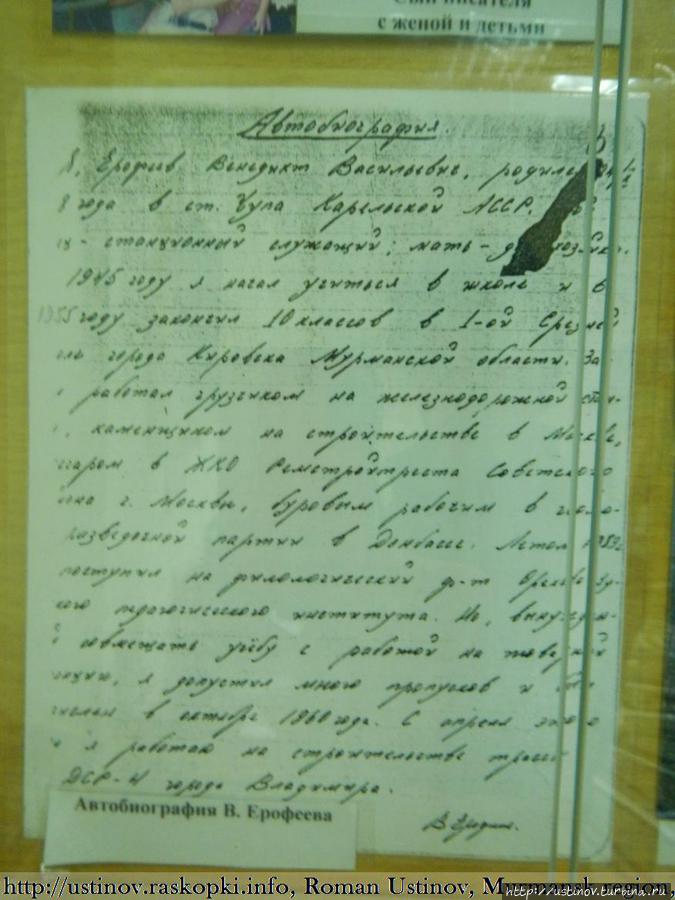 Сын писателя
с женой и детьми
Автобиография.
Я, Ерофеев Венедикт Васильевич, родился
8 года в ст. Чупа Карельской АССР.
станционный служащий; мать -
1945 году я начал учиться в школе и в
1955 году закончил 10 классов в 1-ой Средней
города Кировска Мурманской области. За-
работал грузчиком на железнодорожной стан-
каменщиком на строительстве в Москве,
в ЖКО Ремстройтреста Советского
г. Москвы, буровым рабочим в геоло-
разведочной партии в Донбассе. Летом 1959
поступил на филологический ф-т Орехово-Зу-
кого педагогического института. Но, вынужден-
совмещать учёбу с работой на
я допустил много пропусков и был
в октябре 1960 года. С апреля этого
я работаю на строительстве трассы
ДСР-4 города Владимира.
В Ерофеев.
Автобиография В. Ерофеева
http://ustinov.raskopki.info, Roman Ustinov, Murmansk region,
http://ustinov.turbina.ru/